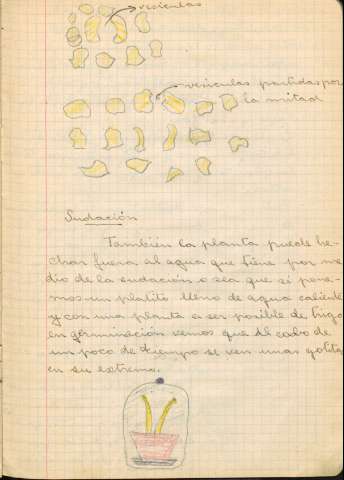 vesiculas
vesiculas partidas por
la mitad
Sudación
También la planta puede he-
char fuera al agua que tiene por me
dio de la sudación o sea que si pone-
mos un platito lleno de agua caliente
y con una planta a ser posible de trigo
en germinación vemos que al cabo de
un poco de tiempo se ven unas gotitas
en su extremo.